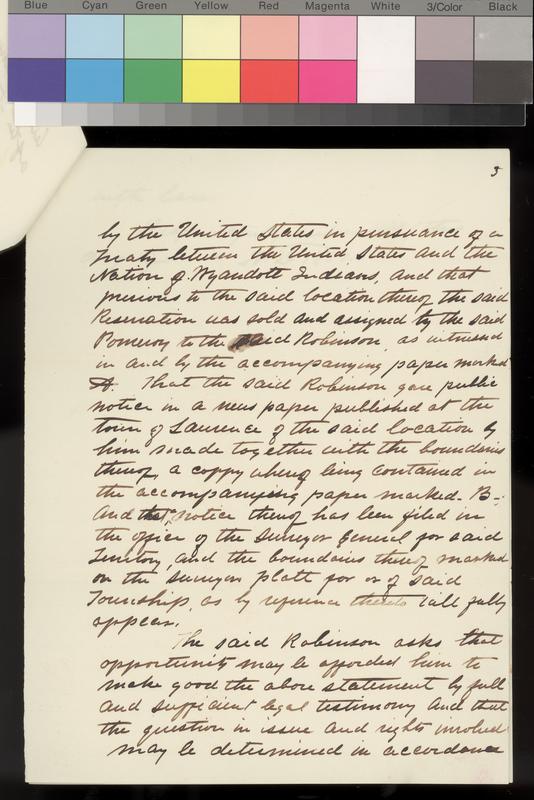 Blue Cyan Green Yellow Red Magenta White 3/Color Black
3
by the United States in pursuance of a
Treaty between the United States and the
Nation of Wyandott Indians, and that
previous to the said location thereof the said
Reservation was sold and assigned by the said
Pomeroy to the said Robinson, as witnessed
in and by the accompanying paper marked
A. That the said Robinson gave public
notice in a news paper published at the
town of Lawrence of the said location by
him made together with the boundaries
thereof, a coppy whereof being contained in
the accompanying paper marked. B-;
And that, notice thereof has been filed in
the office of the Surveyor General for said
Territory, and the boundaries thereof marked
on the surveyor platt for or of said
Township, as by reference thereto will fully
appear.
The said Robinson asks that
opportunity may be afforded him to
make good the above statement by full
and sufficient legal testimony and that
the question in issue and rights involved
may be determined in accordance